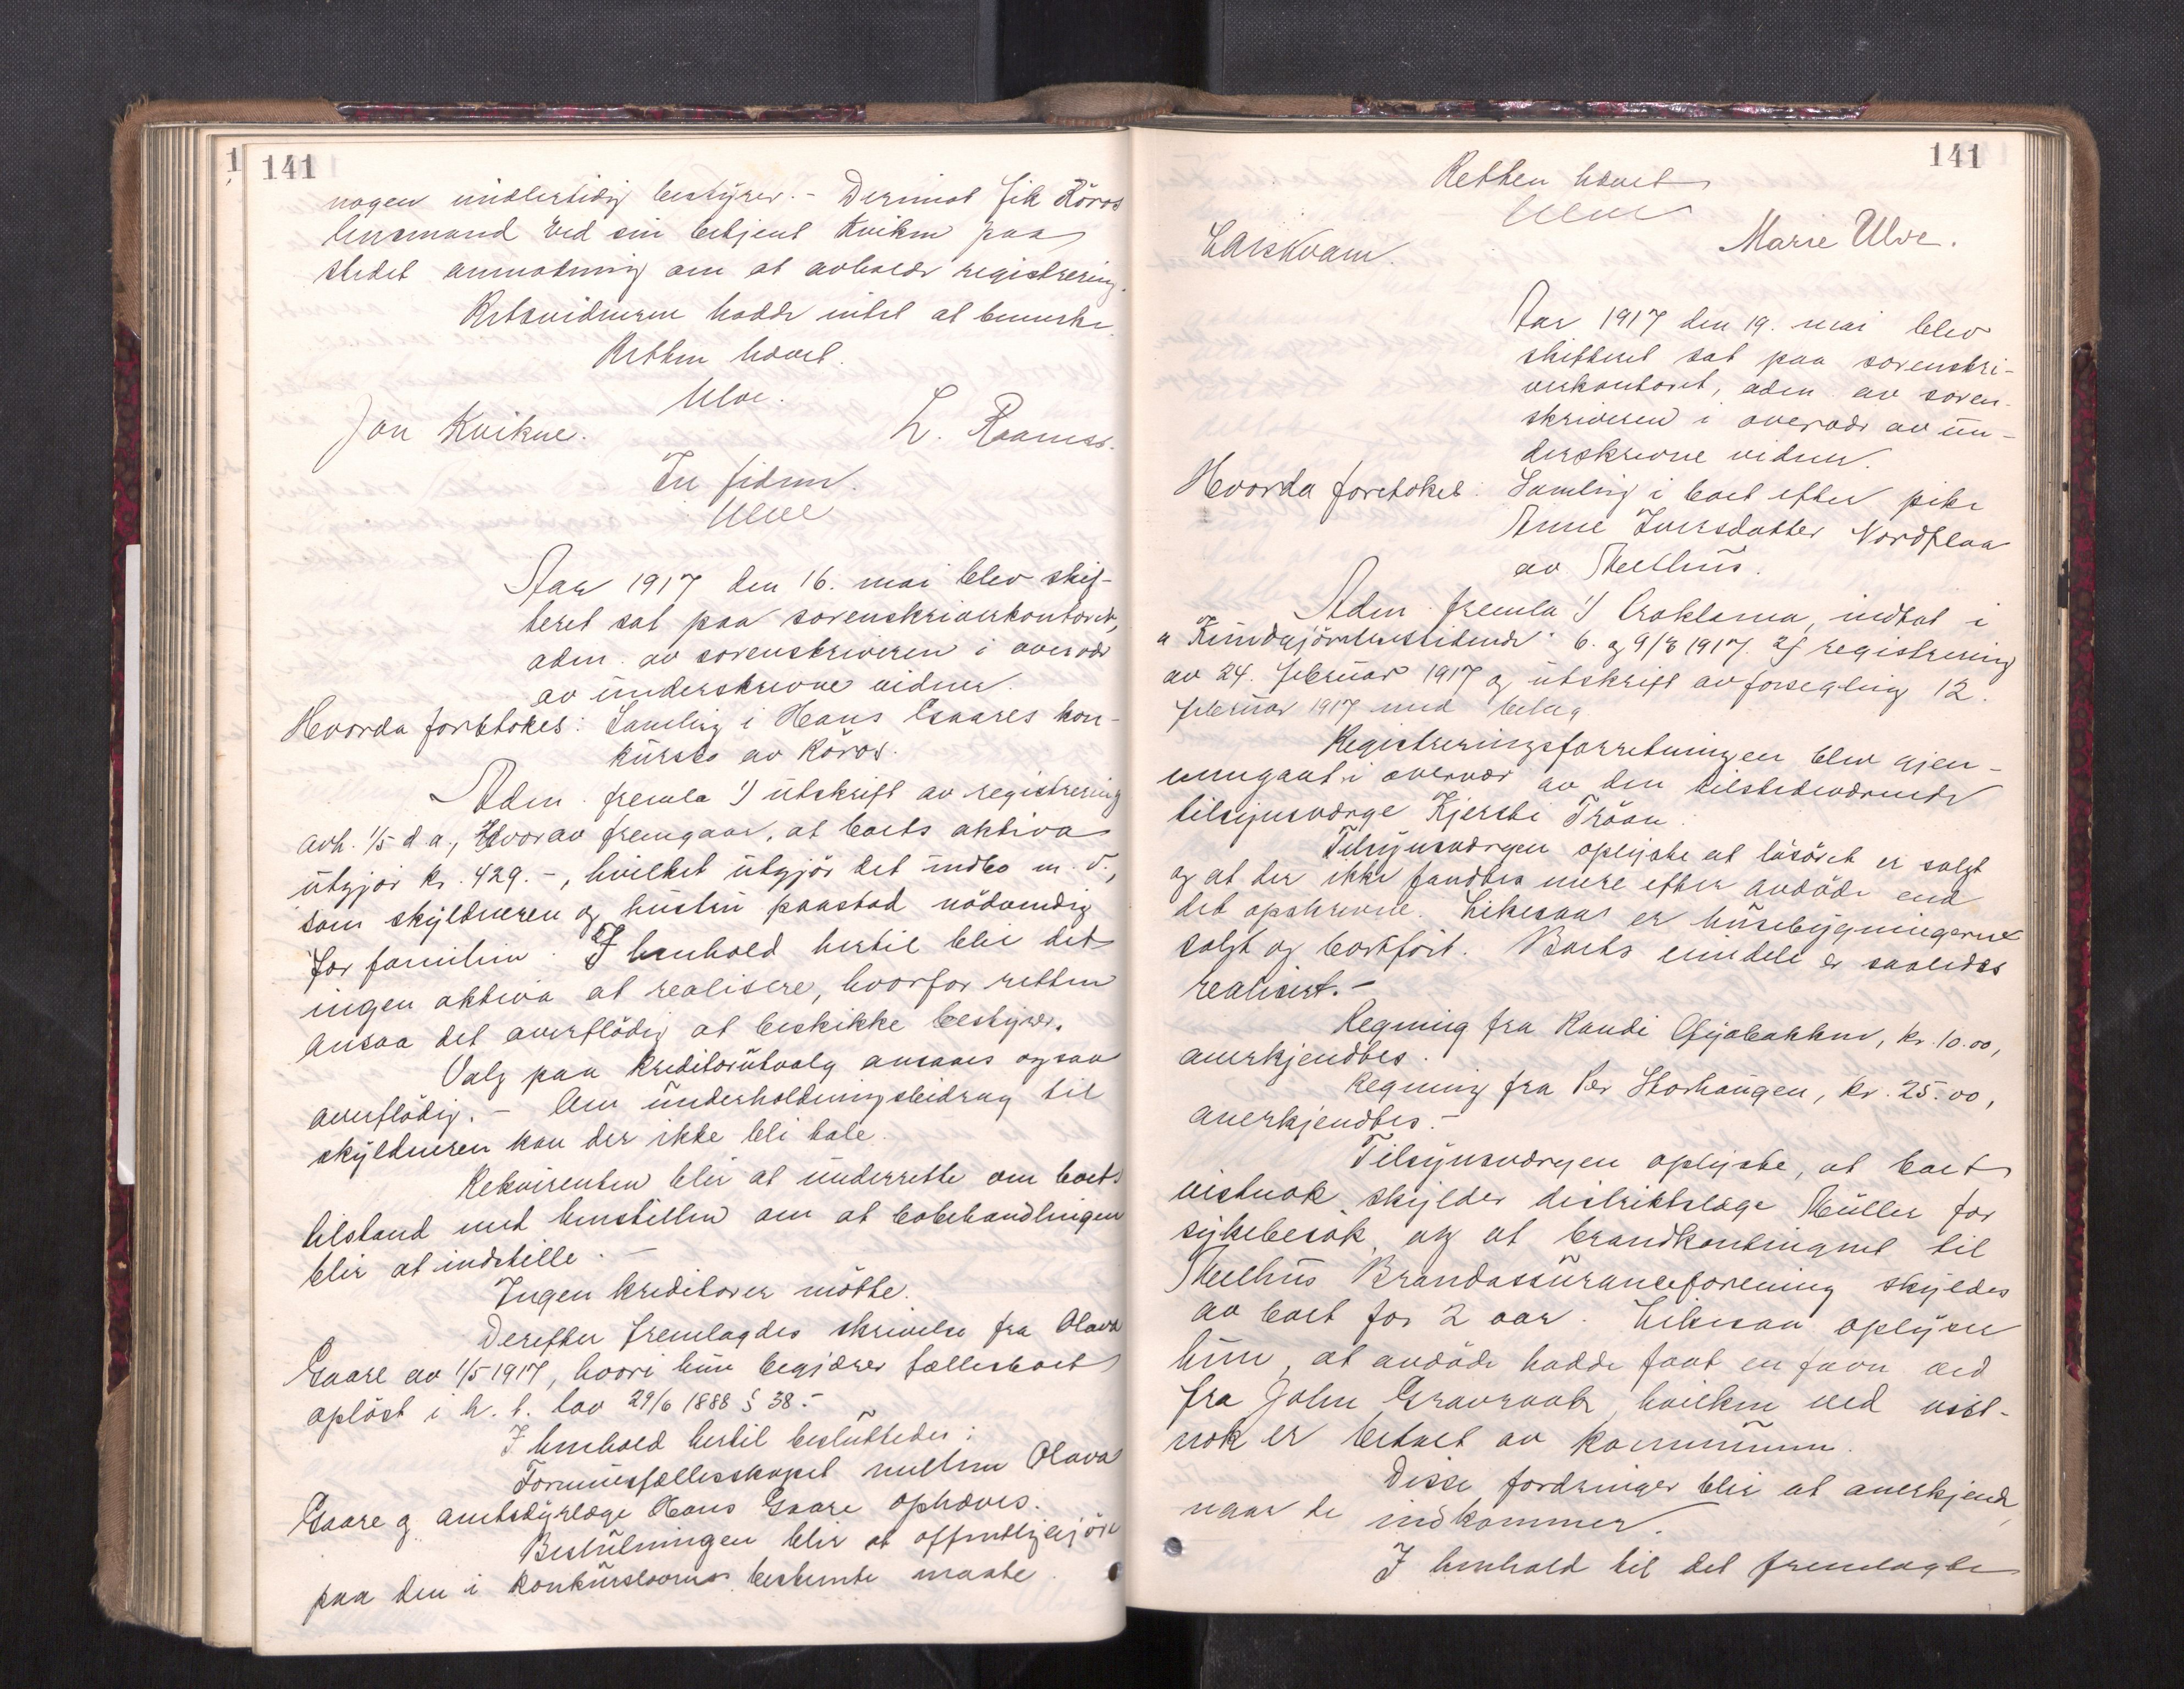 141
nogen midlertidig bestyrer. - Derimot fik Röros
lensmand ved sin betjent Kvikne paa
stedet anmodning om at avholde registrering.
Retsvidnerne hadde intet at bemerke.
Retten hævet.
Ulve.
Jon Kvikne. L. Raamss.
In fidem.
Ulve
Aar 1917 den 16. mai blev skif-
teret sat paa sorenskriverkontoret,
adm. av sorenskriveren i overvær
av underskrevne vidner.
Hvorda foretokes: Samling i Hans Gaares kon-
kursbo av Röros.
Adm. fremla 1) utskrift av registrering
avh. 1/5 d. a., hvorav fremgaar, at boets aktiva
utgjør kr. 429.-, hvilket utgjör det indbo m. v.,
som skyldneren og hustru paastod nödvendig
for familien. I henhold hertil blir det
ingen aktiva at realisere, hvorfor retten
ansaa det overflödig at beskikke bestyrer.
Valg paa kreditorutvalg ansaaes ogsaa
overflödig. - Om underholdningsbidrag til
skyldneren kan der ikke bli tale.
Rekvirenten blir at underrette om boets
tilstand med henstillen om at bobehandlingen
blir at indstille. -
Ingen kreditorer mötte.
Derefter fremlagdes skrivelse fra Olava
Gaare av 1/5 1917, hvori hun begjærer fællesboet
oplöst i h. t. lov 29/6 1888 § 38.-
I henhold hertil besluttedes:
Formuesfællesskapet mellem Olava
Gaare og amtsdyrlæge Hans Gaare ophæves.
Beslutningen blir at offentliggjöre
paa den i konkurslovens bestemte maate.
141
Retten hævet
Ulve
Lars Kvam. Marie Ulve.
Aar 1917 den 19. mai blev
skifteret sat paa sorenskri-
verkontoret, adm. av soren-
skriveren i overvær av un-
derskrevne vidner.
Hvorda foretokes: Samling i boet efter pike
Anne Iversdatter Nordflaa
av Melhus.
Adm. fremla 1) Proklama, indtat i
"Kundgjörelsestidende" 6. og 9/3 1917. 2) registrering
av 24. februar 1917 og utskrift av forsegling 12.
februar 1917 med bilag.
Registreringsforretningen blev gjen-
nemgaat i overvær av den tilstedeværende
tilsynsværge Kjersti Tröan.
Tilsynsværgen oplyste at lösöret er solgt
og at der ikke fandtes mere efter avdöde end
det opskrevne. Likesaa er husebygningerne
solgt og bortfört. Boets eiendele er saaledes
realisert. -
Regning fra Randi Gyabakken, kr. 10.00,
anerkjendtes.
Regning fra Per Storhaugen, kr. 25.00,
anerkjendtes. -
Tilsynsværgen oplyste, at boet
vistnok skylder distriktslæge Müller for
sykebesök, og at brandkontingent til
Melhus Brandassuranseforening skyldes
av boet for 2 aar. Likesaa oplyser
hun, at avdöde hadde faat en favn ved
fra John Gravraak, hvilken ved vist-
nok er betalt av kommunen.
Disse fordringer blir at anerkjende,
naar de indkommer.
I henhold til det fremlagte